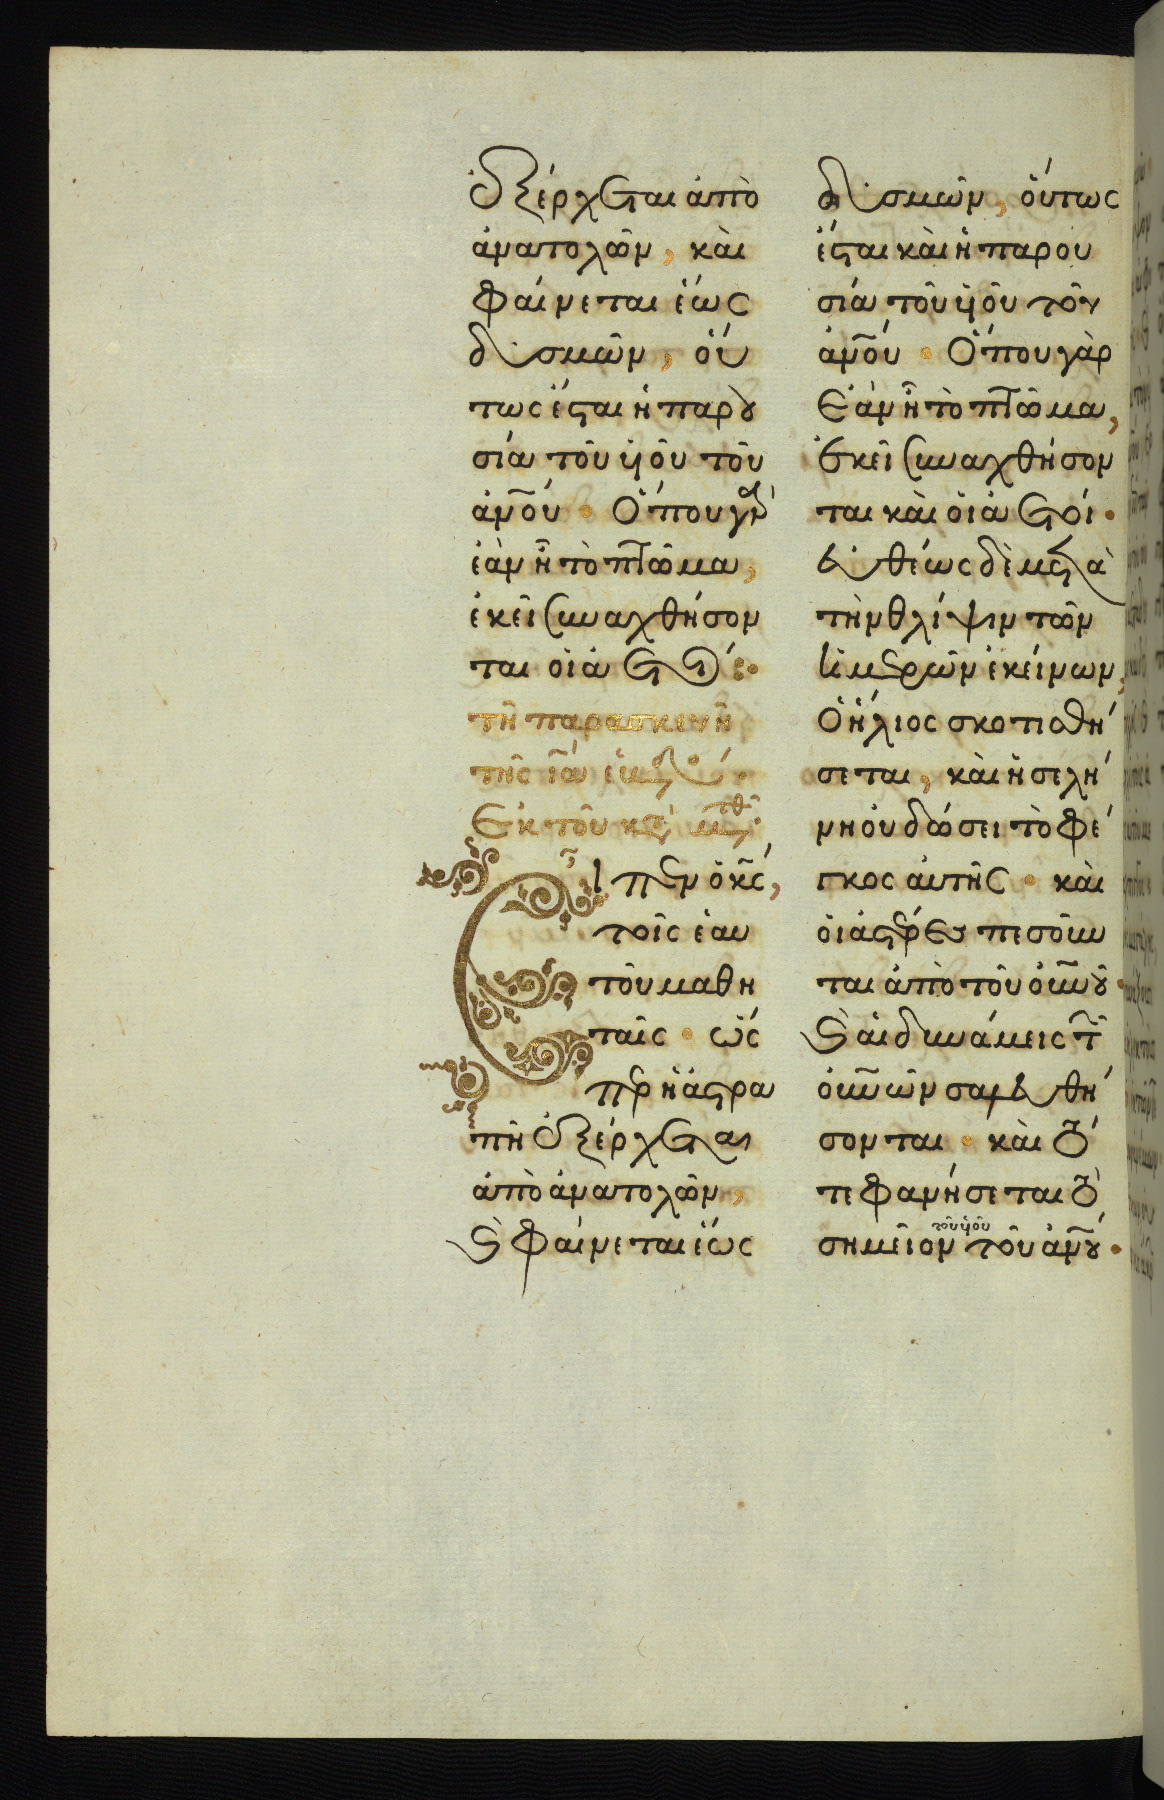 ἐξέρχεται ἀπὸ
ἀνατολῶν, καὶ
φαίνεται ἕως
δυσμῶν, οὕ
τως ἔσται ἡ παρου
σία τοῦ υἱοῦ τοῦ
ἀν̅ου· Ὅπου γὰρ
ἐὰν ᾖ τὸ πτῶμα,
ἐκεῖ συναχθήσον
ται οἱ ἀετοί·
τῇ παρασκευῇ
τῆς
Ἐκ τοῦ κατὰ
Εἶπεν ὁ κς̅,
τοῖς ἑαυ
τοῦ μαθη
ταῖς· ὥς
περ ἡ ἀστρα
πὴ ἐξέρχεται
ἀπὸ ἀνατολῶν,
καὶ φαίνεται ἕως
δυσμῶν, οὕτως
ἔσται καὶ ἡ παρου
σία τοῦ υἱοῦ τοῦ
ἀν̅ου· Ὅπου γὰρ
ἐὰν ᾖ τὸ πτῶμα,
ἐκεῖ συναχθήσον
ται καὶ οἱ ἀετοί·
εὐθέως δὲ μετὰ
τὴν θλίψιν τῶν
ἡμερῶν ἐκείνων,
Ὁ ἥλιος σκοτισθή
σεται, καὶ ἡ σελή
νη οὐ δώσει τὸ φέ
γκος αὐτῆς· καὶ
οἱ ἀστέρες πεσοῦν
ται ἀπὸ τοῦ οὐν̅οῦ·
καὶ αἱ δυνάμεις τῶν
οὐν̅ῶν σαλευθή
σονται· καὶ τό
τε φανήσεται τὸ
σημεῖον τοῦ υἱοῦ τοῦ ἀν̅ου·